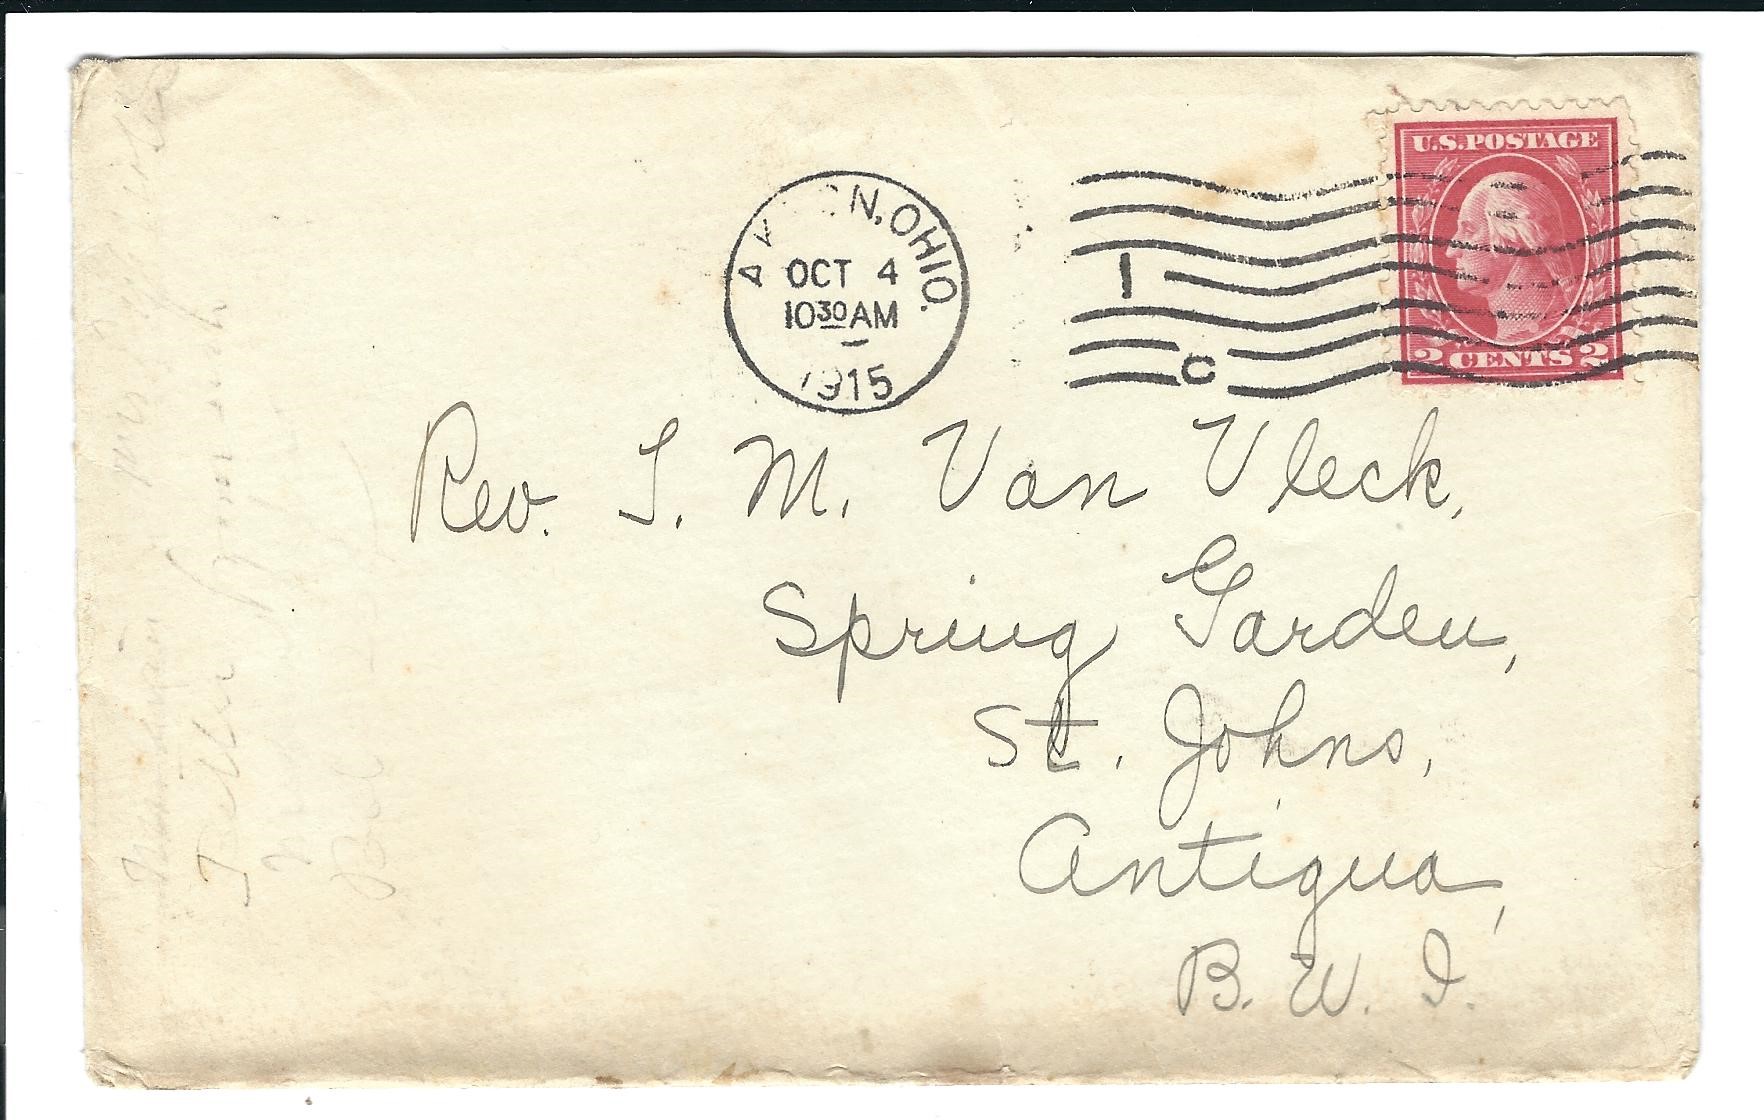 U.S. POSTAGE
2 CENTS 2
N, OHIO.
OCT 4
10 30 AM
1915
1
C
Rev. S. M. Van Vleck,
Spring Garden,
St. Johns,
Antigua,
B. W. I.